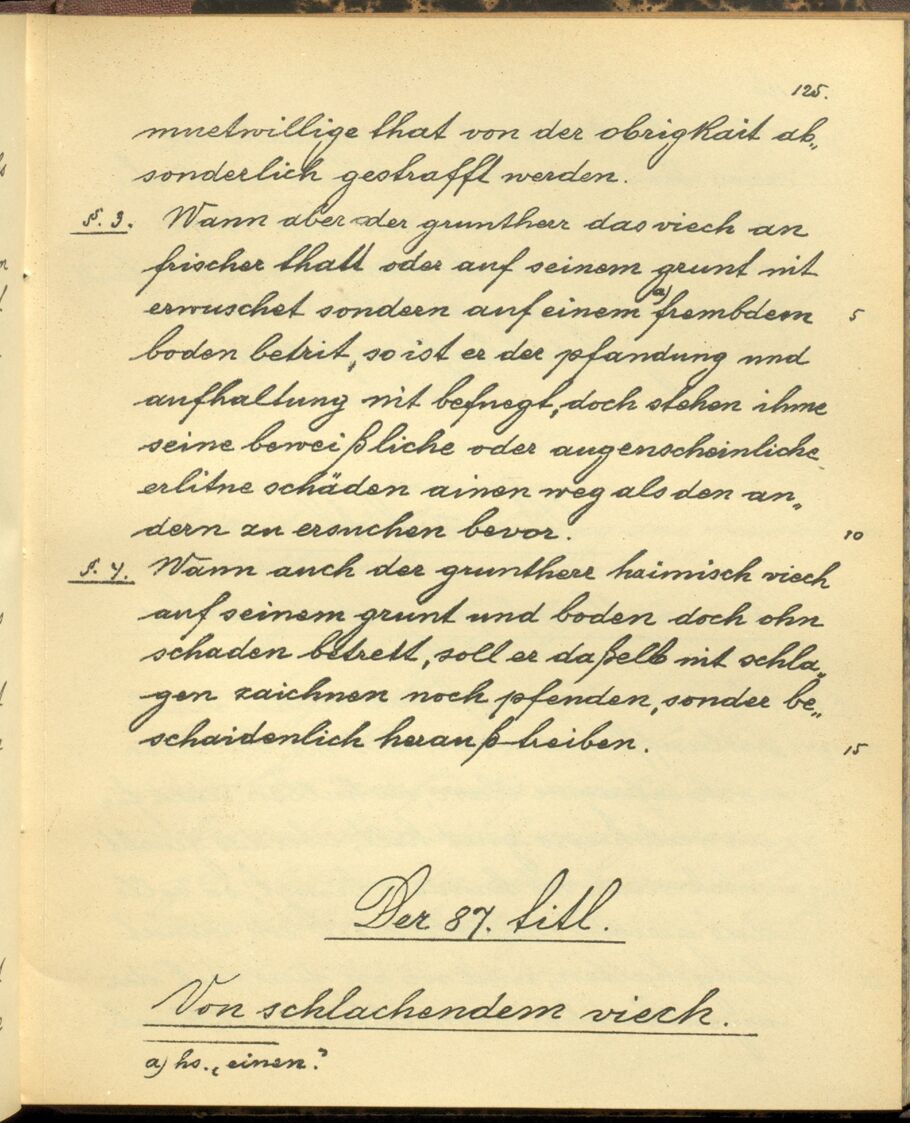 125.
muetwillige that von der obrigkait ab„
sonderlich gestrafft werden.
§. 3. Wann aber der gruntherr das viech an
frischer thatt oder auf seinem grunt nit
erwuschet sondern auf einem a) frembdem 5
boden betrit, so ist er der pfandung und
aufhaltung nit befuegt, doch stehen ihme
seine beweißliche oder augenscheinliche
erlitne schäden ainen weg als den an„
dern zu ersuchen bevor. 10
§. 4. Wann auch der gruntherr haimisch viech
auf seinem grunt und boden doch ohn
schaden betrett, soll er daßelb nit schla„
gen zaichnen noch pfenden, sonder be„
schaidenlich herauß treiben. 15
Der 87. titl.
Von schlachendem viech.
a) hs. „einen."